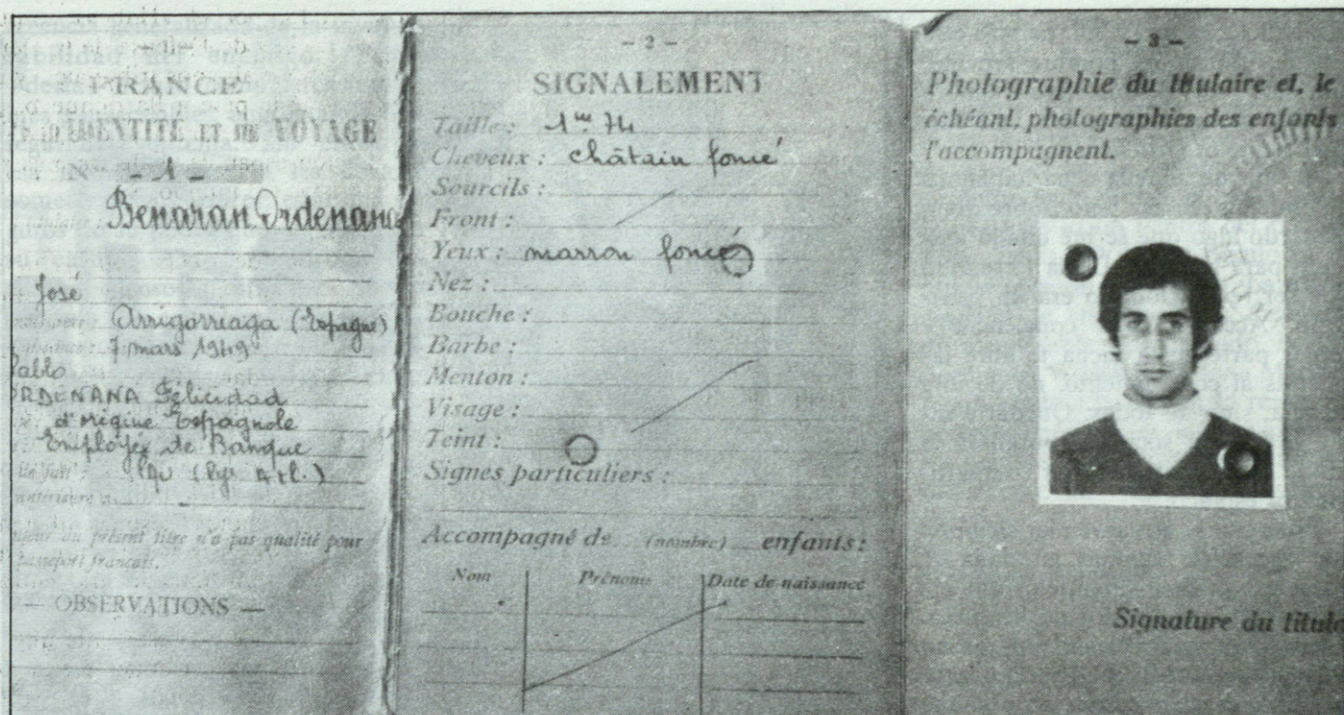 FRANCE
D'IDENTITÉ ET DE VOYAGE
- 1 -
Benaran Ordenana
José
Arrigorriaga (Espagne)
7 mars 1949
Pablo
ORDENANA Félicidad
d'origine Espagnole
Employé de Banque
du présent titre n'a pas qualité pour
passeport français.
— OBSERVATIONS —
- 2 -
SIGNALEMENT
Taille : 1m 74
Cheveux : châtain foncé
Sourcils :
Front :
Yeux : marron foncé
Nez :
Bouche :
Barbe :
Menton :
Visage :
Teint :
Signes particuliers :
Accompagné de (nombre) enfants :
Nom Prénoms Date de naissance
- 3 -
Photographie du titulaire et, le
échéant, photographies des enfants
l'accompagnent.
Signature du titula